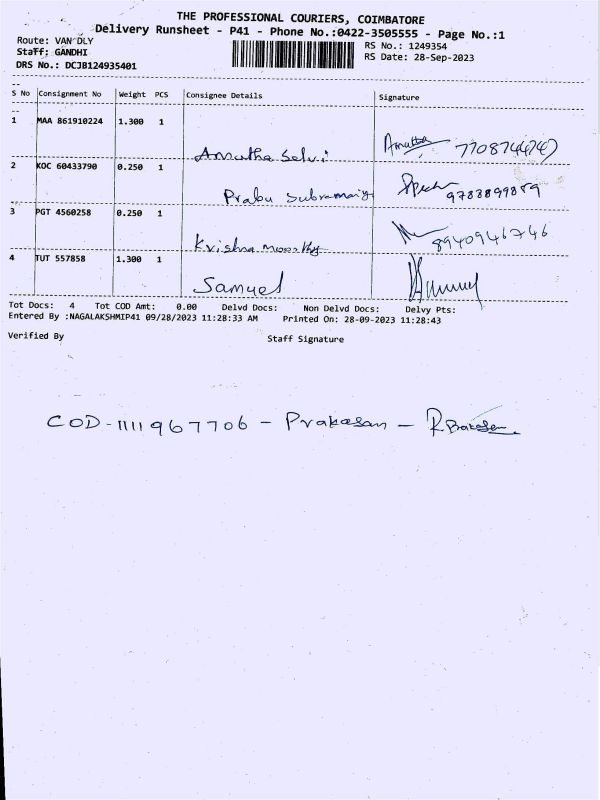 THE PROFESSIONAL COURIERS, COIMBATORE
Delivery Runsheet - P41 - Phone No.:0422-3505555 - Page No.:1
Route: VAN DLY
RS No.: 1249354
Staff: GANDHI
RS Date: 28-Sep-2023
DRS No.: DCJB124935401
S No Consignment No Weight PCS Consignee Details Signature
1 MAA 861910224 1.300 1
Amutha Selvi
2 KOC 60433790 0.250 1
Prabu 9788899889
3 PGT 4560258 0.250 1
Krishna Moorthy 8940946746
4 TUT 557858 1.300 1
Samuel
Tot Docs: 4 Tot COD Amt: 0.00 Delvd Docs: Non Delvd Docs: Delvy Pts:
Entered By :NAGALAKSHMIP41 09/28/2023 11:28:33 AM Printed On: 28-09-2023 11:28:43
Verified By Staff Signature
COD-1111967706 - Prakasan -